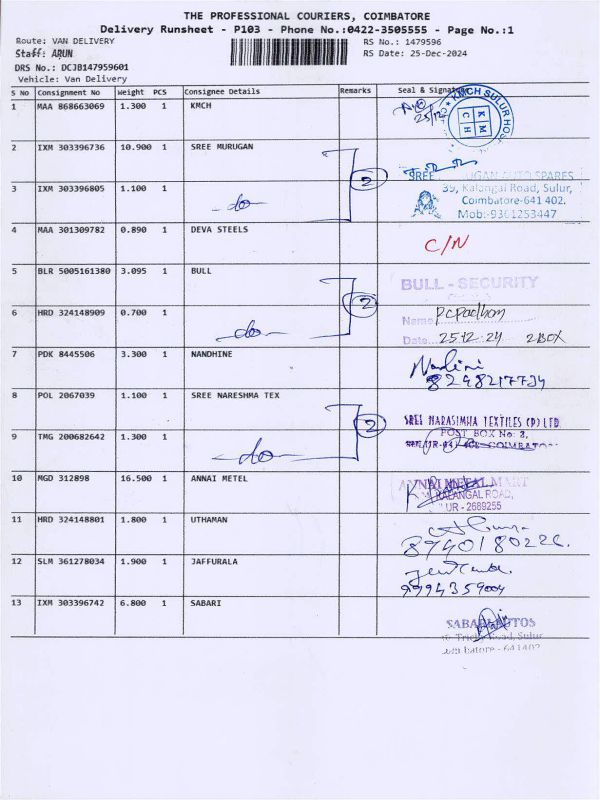 THE PROFESSIONAL COURIERS, COIMBATORE
Delivery Runsheet - P103 - Phone No.:0422-3505555 - Page No.:1
Route: VAN DELIVERY
RS No.: 1479596
Staff: ARUN
RS Date: 25-Dec-2024
DRS No.: DCJB147959601
Vehicle: Van Delivery
S No Consignment No Weight PCS Consignee Details Remarks Seal & Signature
1 MAA 868663069 1.300 1 KMCH
KMCH SULUR HOS
K M C H
2 IXM 303396736 10.900 1 SREE MURUGAN
2
SREE UGAN AUTO SPARES
3 IXM 303396805 1.100 1 -do-
39, Kalangal Road, Sulur,
Coimbatore-641 402.
Mob:-9361253447
4 MAA 301309782 0.890 1 DEVA STEELS C/N
5 BLR 5005161380 3.095 1 BULL
BULL - SECURITY
2
6 HRD 324148909 0.700 1 -do-
Name
Date 25.12.24 2 BOX
7 PDK 8445506 3.300 1 NANDHINE
Nandini
8248217734
8 POL 2067039 1.100 1 SREE NARESHMA TEX
2
SREE NARASIMHA TEXTILES (P) LTD.
POST BOX No: 2,
9 TMG 200682642 1.300 1 -do-
COIMBATO
10 MGD 312898 16.500 1 ANNAI METEL
ANNAI METAL MART
KALANGAL ROAD,
UR - 2689255
11 HRD 324148801 1.800 1 UTHAMAN
12 SLM 361278034 1.900 1 JAFFURALA
9994359004
13 IXM 303396742 6.800 1 SABARI
SABARI AUTOS
Road, Sulur
batore - 641402